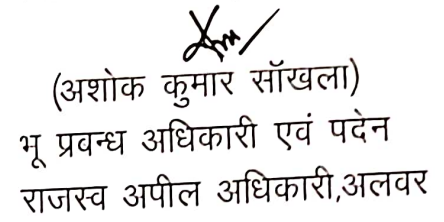 (अशोक कुमार सॉखला)
भू प्रवन्ध अधिकारी एवं पदेन
राजस्व अपील अधिकारी,अलवर